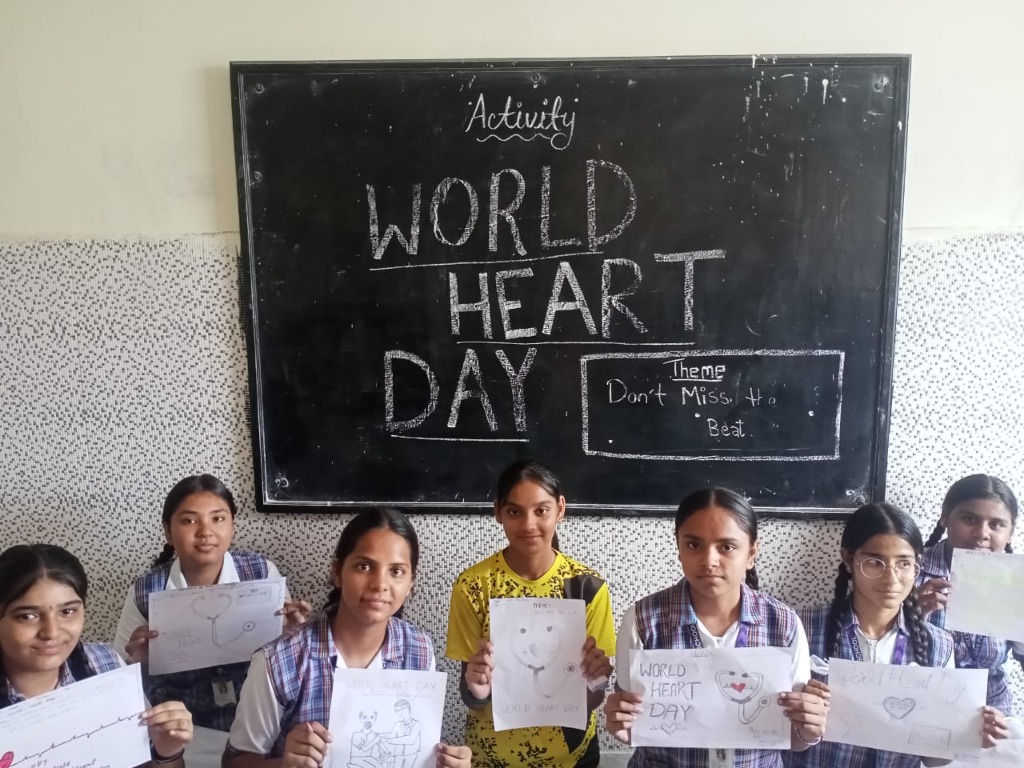 Activity
WORLD
HEART
DAY
Theme
Don't Miss the
Beat
WORLD HEART DAY
THEME:
WORLD HEART DAY
WORLD
HEART
DAY
World Heart Day